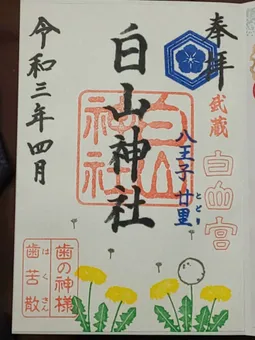 奉拝
武蔵
白山宮
八王子廿里
とどり
白山神社
白山神社
令和三年四月
歯の神様
はくさん
歯苦散